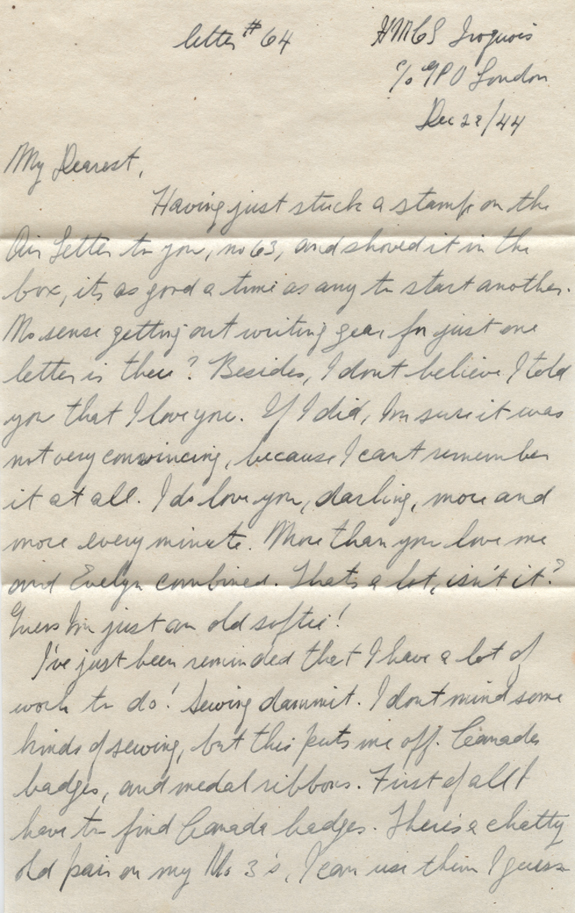 letter #64
HMCS Iroquois
c/o GPO London
Dec 29/44
My Dearest,
Having just stuck a stamp on the
Air Letter to you, no 63, and shoved it in the
box, its as good a time as any to start another.
No sense getting out writing gear for just one
letter is there? Besides, I dont believe I told
you that I love you. If I did, Im sure it was
not very convincing, because I cant remember
it at all. I do love you, darling, more and
more every minute. More than you love me
and Evelyn combined. Thats a lot, isn't it?
Guess Im just an old softie!
I've just been reminded that I have a lot of
work to do! Sewing dammit. I dont mind some
kinds of sewing, but this puts me off. Canada
badges, and medal ribbons. First of all I
have to find Canada badges. There's a chatty
old pair on my No 3's, I can use them I guess